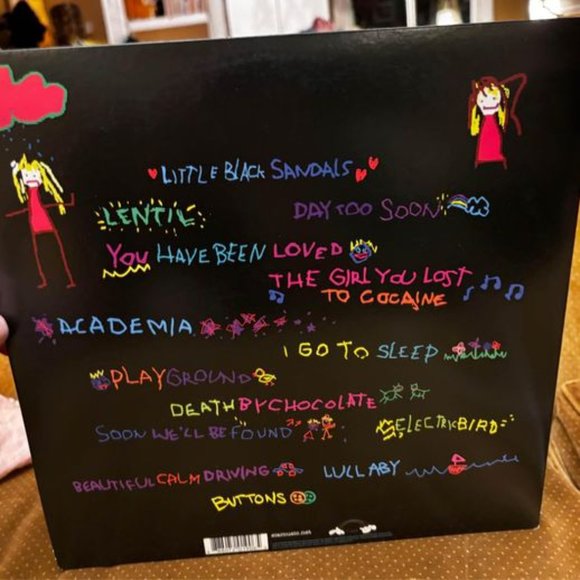 LITTLE BLACK SANDALS
LENTIL
DAY TOO SOON
YOU HAVE BEEN LOVED
THE GIRL YOU LOST
TO COCAINE
ACADEMIA
I GO TO SLEEP
PLAYGROUND
DEATH BY CHOCOLATE
SOON WE'LL BE FOUND
ELECTRIC BIRD
BEAUTIFUL CALM DRIVING
LULLABY
BUTTONS